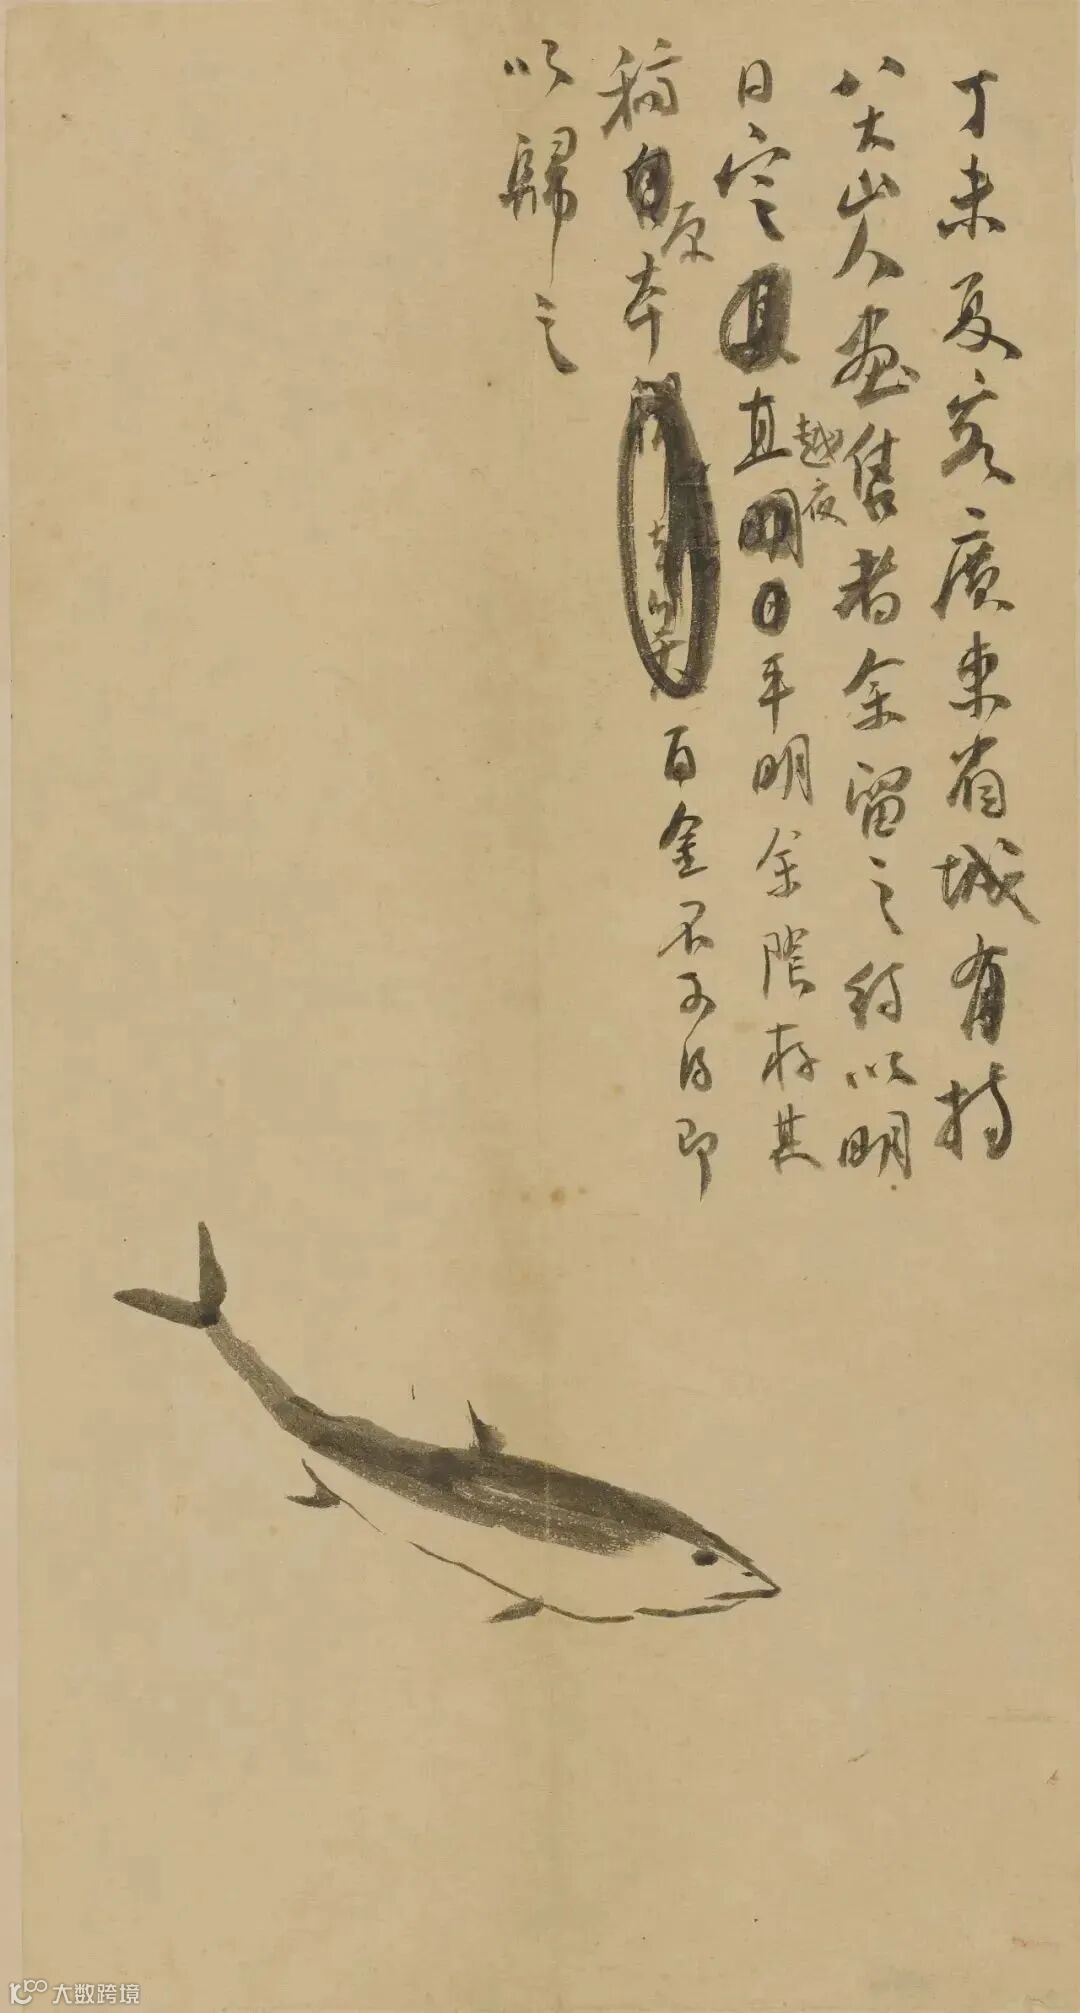 丁未夏客廣東省城有持
八大山人畫售者余留之約以明
日定直越夜平明余陰存其
稿原本百金不可得即
以歸之
大数跨境